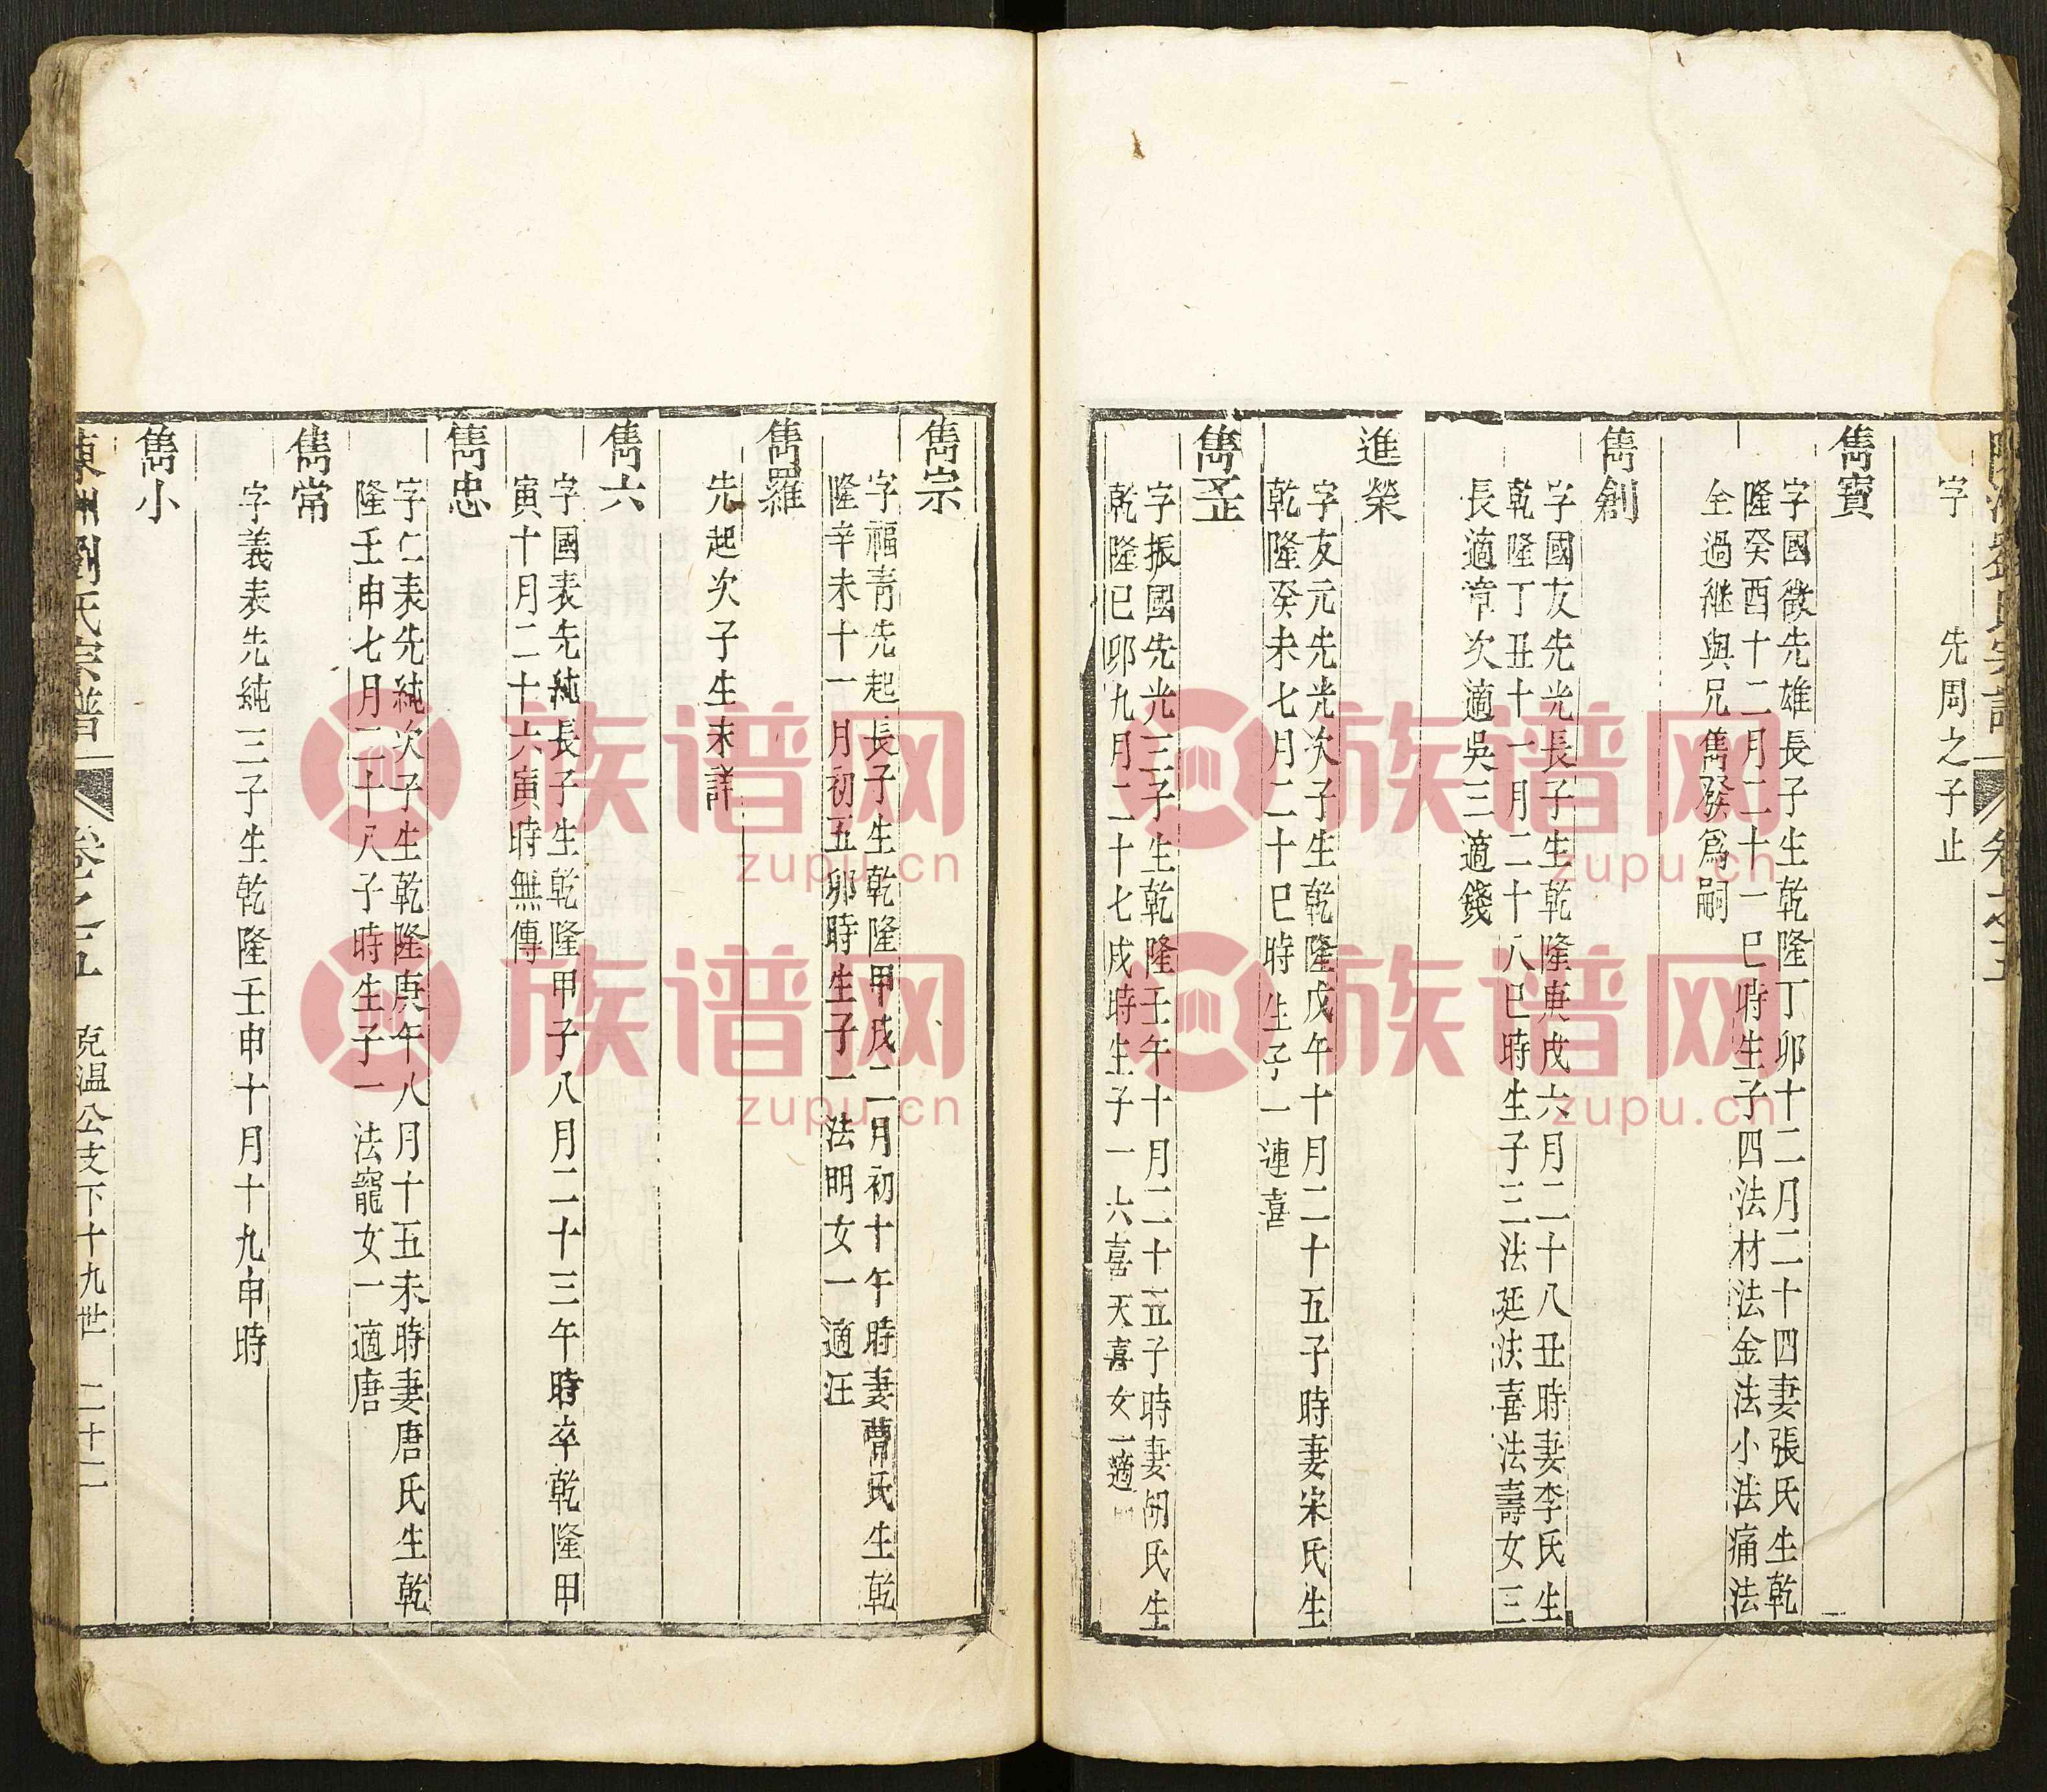 字　先周之子止
雋寶
字國徵先雄長子生乾隆丁卯十二月二十四妻張氏生乾
隆癸酉十二月二十一巳時生子四法材法金法小法痛法
全過継與兄雋發爲嗣
雋創
字國友先光長子生乾隆庚戌六月二十八丑時妻李氏生
乾隆丁丑十一月二十八巳時生子三法延法喜法壽女三
長適章次適吳三適錢
進榮
字友元先光次子生乾隆戊午十月二十五子時妻宋氏生
乾隆癸未七月二十巳時生子一連喜
雋
字振國先光三子生乾隆壬午十月二十五子時妻胡氏生
乾隆已卯九月二十七戌時生子一六喜天喜女一適
雋宗
字福青先起長子生乾隆甲戌二月初十午時妻曹氏生乾
隆辛未十一月初五卯時生子一法明女一適汪
雋羅
先起次子生未詳
雋六
字國表先純長子生乾隆甲子八月二十三午時卒乾隆甲
寅十月二十六寅時無傳
雋忠
字仁表先純次子生乾隆庚午八月十五未時妻唐氏生乾
隆壬申七月二十八子時生子一法寵女一適唐
雋常
字義表先純三子生乾隆壬申十月十九申時
雋小
劉氏宗譜　卷之五　克温公支下十九世　二十二
族谱网
zupu.cn
族谱网
zupu.cn
族谱网
zupu.cn
族谱网
zupu.cn